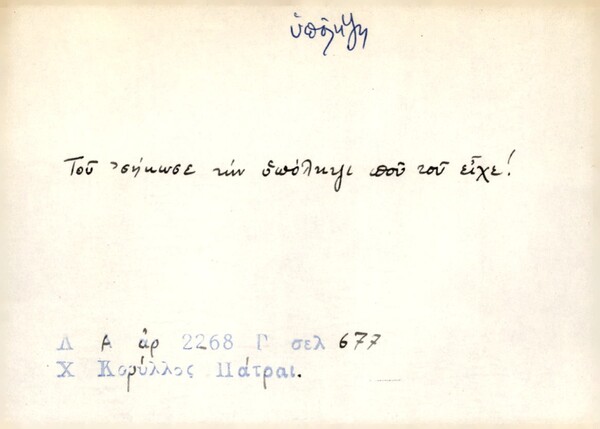 ὑπόληψη
Τοῦ 'σήκωσε τήν ὑπόληψι ποῦ τοῦ εἶχε!
Λ Α ἀρ 2268 Γ σελ 677
Χ Κορύλλος Πάτραι.